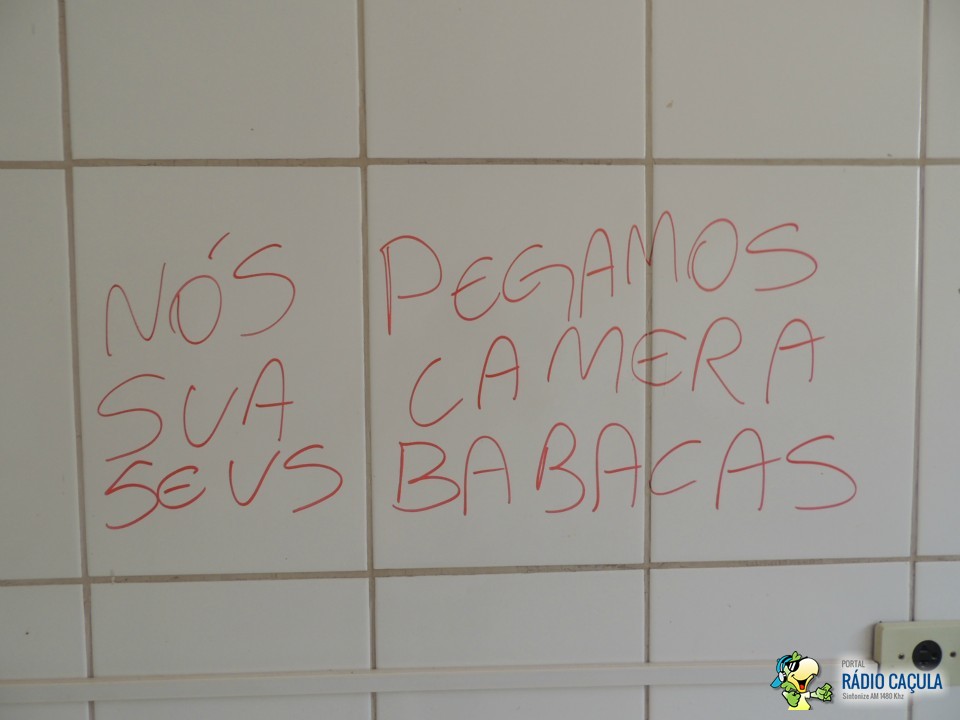 NÓS PEGAMOS
SUA CAMERA
SEUS BABACAS
PORTAL
RÁDIO CAÇULA
Sintonize AM 1480 Khz